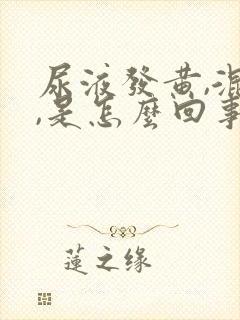 尿液發黃,混
,是怎麼回事
蓮之缘